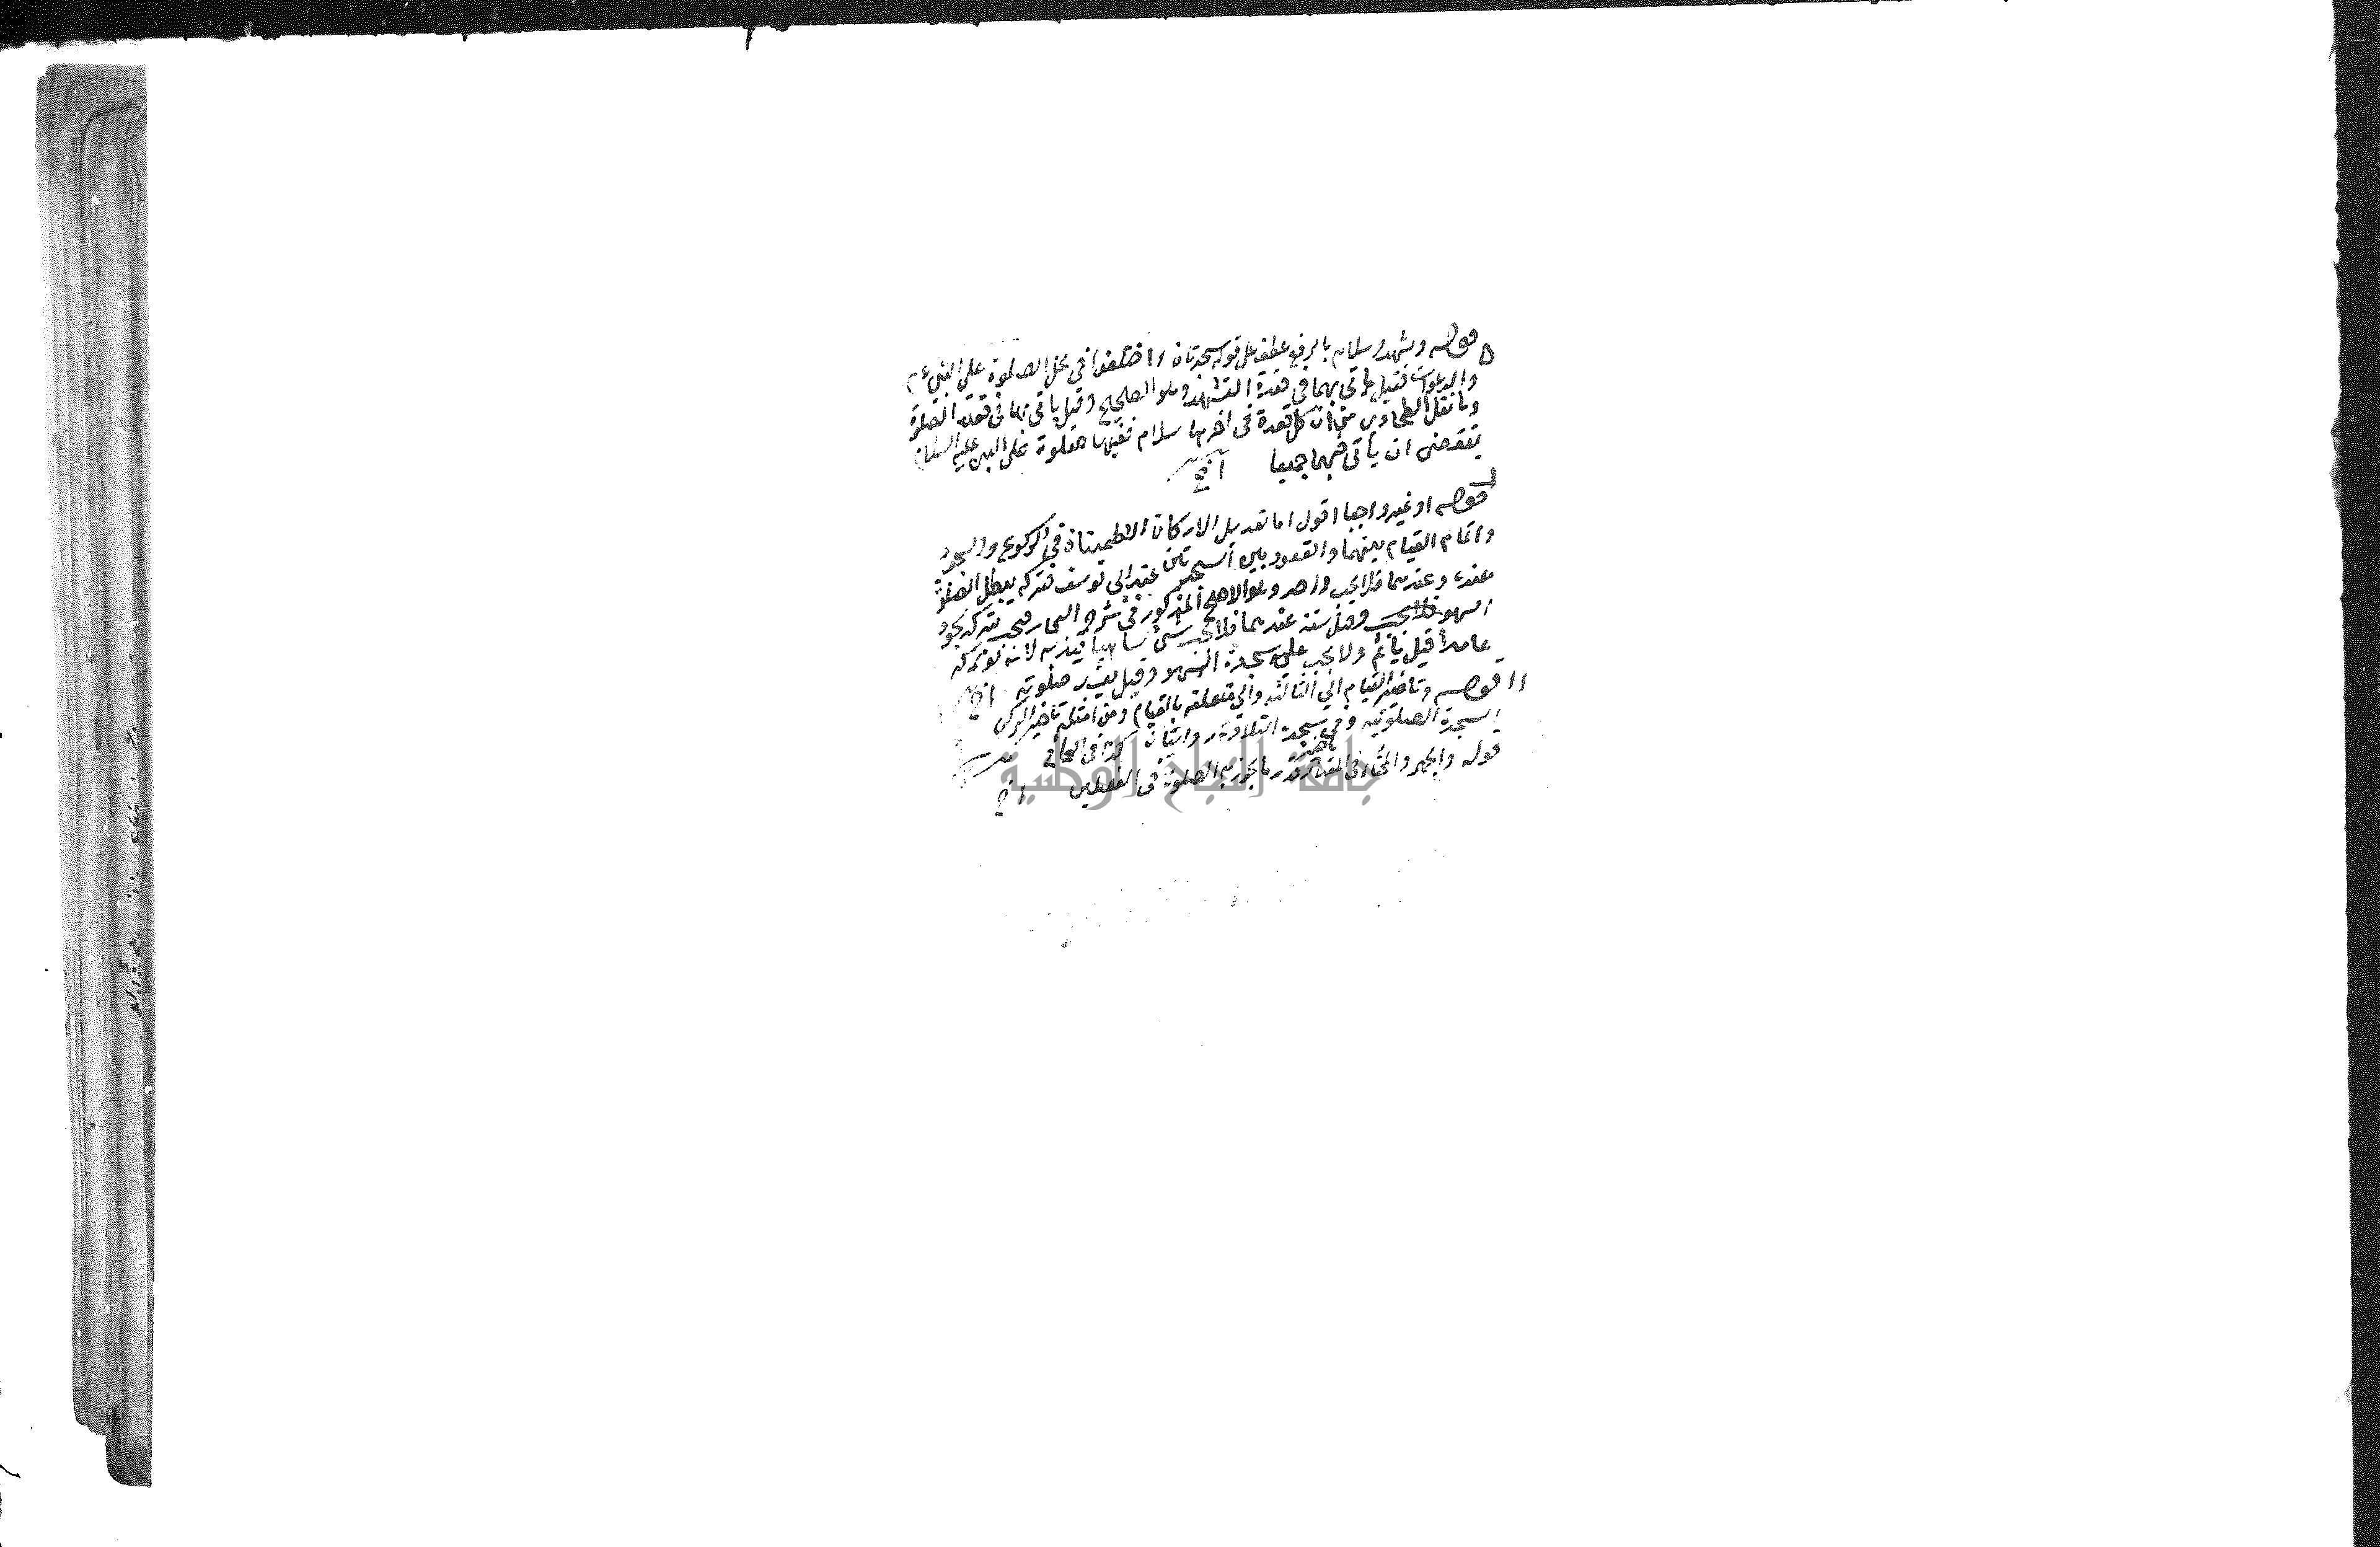 قوله وتشهد وسلام بالرفع عطف على قوله سجدتان واختلفوا في محل الصلوة على النبي عم
والدعوات فقيل يأتي بهما في قعدة التشهد وهو الصحيح وقيل يأتي بهما في قعدة الصلوة
وما نقل الطحاوي من أن كل قعدة في اخرها سلام ففيها صلوة على النبي عليه السلام
يقتضى ان يأتى فيهما جميعا اخ
قوله او غير واجبا اقول اما تعديل الاركان الطمينان في الركوع والسجود
واتمام القيام بينهما والقعود بين السجدتين عند ابى يوسف فتركه يبطل الصلوة
عنده وعندهما فلا يجب واحد وهو الاصح المذكور في شرح بتركه سجود
السهو وقيل سنة عندهما فلا يجب شئ ساهيا لانه لو تركه
عامدا قيل يأثم ولا يجب عليه سجدة السهو وقيل صلوته اخ
قوله وتاخير القيام الى الثالثة والى متعلقه بالقيام ومن امثلة تاخير الركن
السجدة الصلوتية وفي سجدة التلاوة روايتان كذا في
قوله والجهر والمختار في المقدار قدر ما يجوز به الصلوة في الفصلين اخ
جامعة النجاح الوطنية